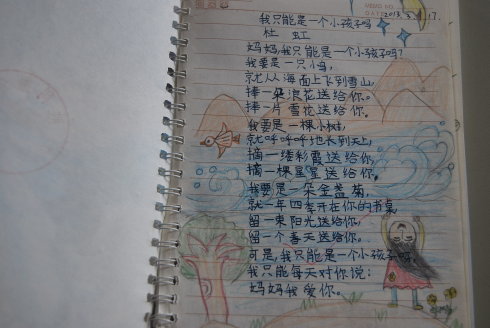 MEMO NO.
DATE 2013.3.17.
我只能是一个小孩子吗
杜 虹
妈妈,我只能是一个小孩子吗?
我要是一只小鸟,
就从海面上飞到雪山,
捧一朵浪花送给你。
捧一片雪花送给你。
我要是一棵小树,
就呼呼呼地长到天上,
摘一缕彩霞送给你,
摘一棵星星送给你。
我要是一朵金盏菊,
就一年四季开在你的书桌
留一束阳光送给你,
留一个春天送给你。
可是,我只能是一个小孩子吗?
我只能每天对你说:
妈妈我爱你。